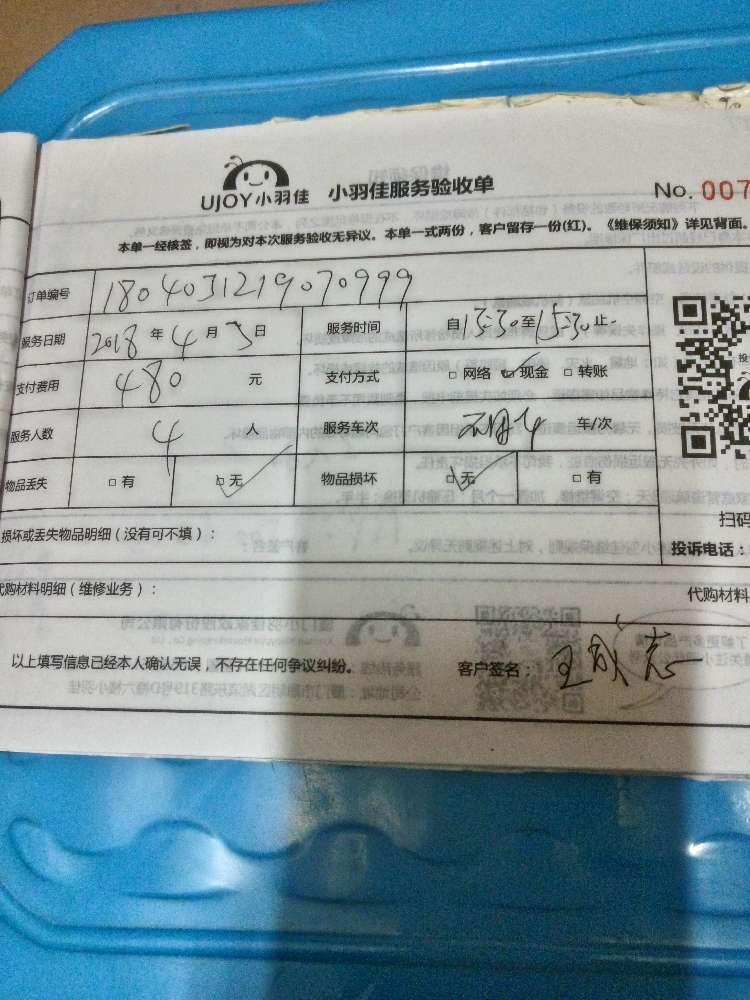 UJOY小羽佳 小羽佳服务验收单 No. 007
本单一经核签，即视为对本次服务验收无异议。本单一式两份，客户留存一份(红)。《维保须知》详见背面。
订单编号 1804031219070999
服务日期 2018 年 4 月 3 日 服务时间 自 13:30 至 15:30 止
支付费用 480 元 支付方式 □ 网络 □ 现金 □ 转账
服务人数 4 人 服务车次 车/次
物品丢失 □ 有 □ 无 物品损坏 □ 无 □ 有
损坏或丢失物品明细（没有可不填）：
扫码
投诉电话：
代购材料明细（维修业务）： 代购材料
以上填写信息已经本人确认无误，不存在任何争议纠纷。 客户签名： 王 志